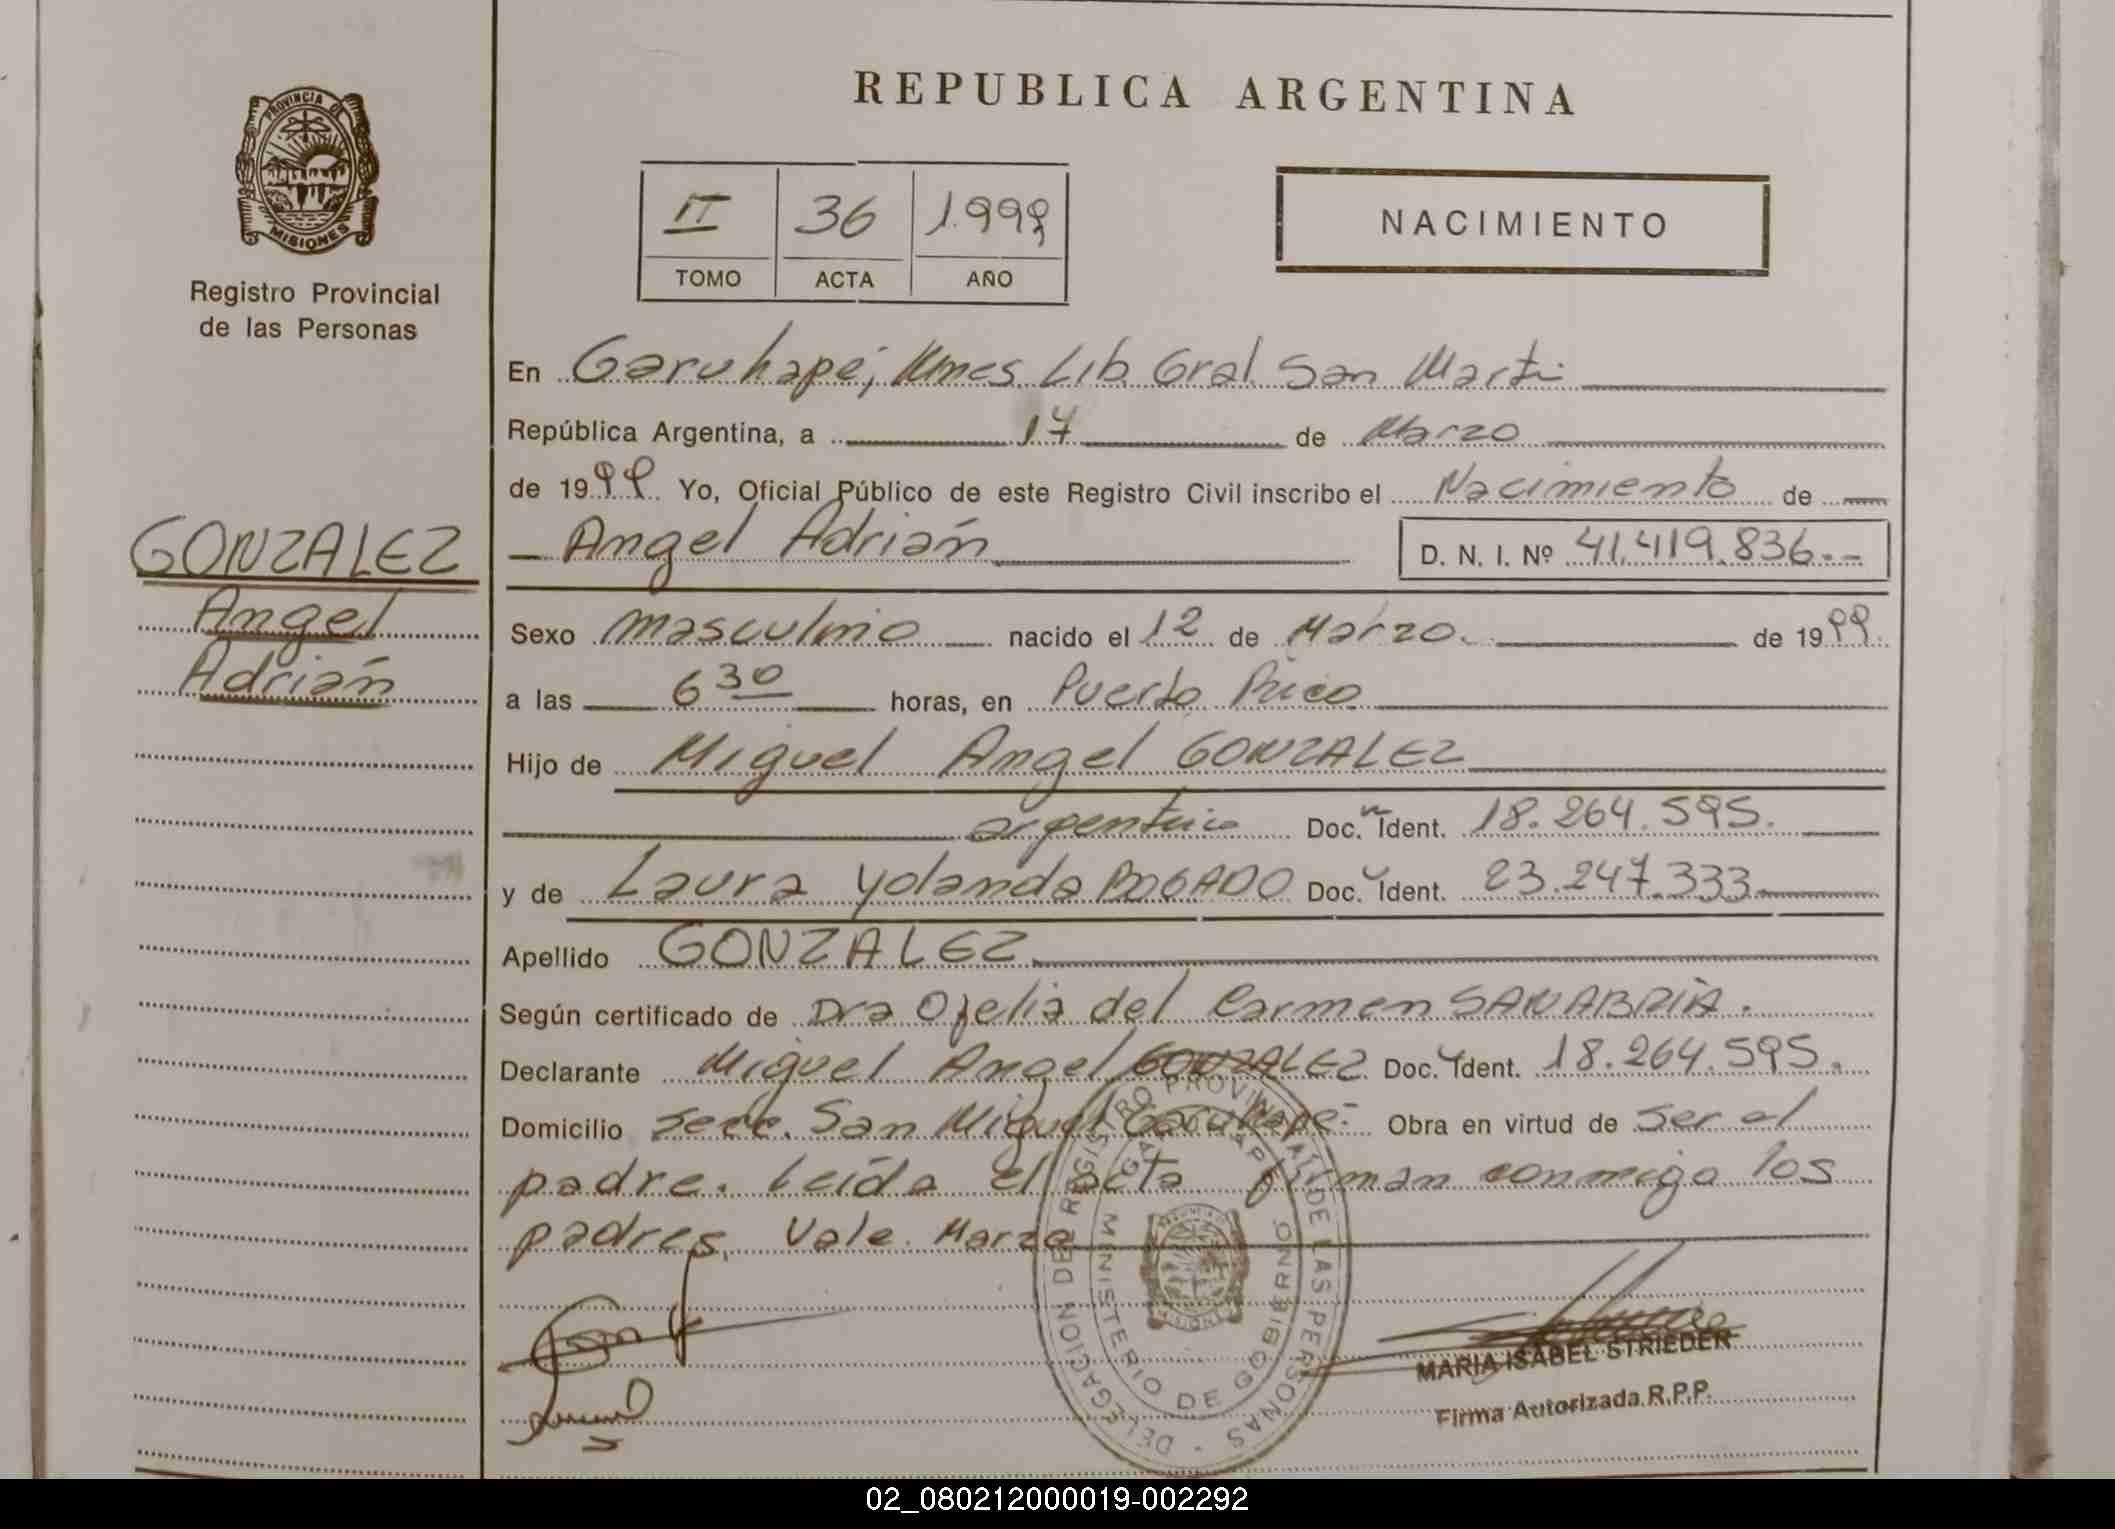 REPUBLICA ARGENTINA
PROVINCIA DE
MISIONES
Registro Provincial
de las Personas
II 36 1.999
TOMO ACTA AÑO
NACIMIENTO
En Garuhapé, Mnes Lib. Gral. San Martin
República Argentina, a 17 de Marzo
de 1999. Yo, Oficial Público de este Registro Civil inscribo el Nacimiento de
GONZALEZ
Angel
Adrián
Angel Adrián D. N. I. Nº 41.419.836.--
Sexo masculino nacido el 12 de Marzo. de 1999.
a las 6 30 horas, en Puerto Rico
Hijo de Miguel Angel GONZALEZ
argentino Doc. Ident. 18.264.595.
y de Laura Yolanda BOGADO Doc. Ident. 23.247.333
Apellido GONZALEZ
Según certificado de Dra Ofelia del Carmen SANABRIA.
Declarante Miguel Angel GONZALEZ Doc. Ident. 18.264.595.
Domicilio Secc. San Miguel Garuhapé- Obra en virtud de ser el
padre. Leída el acta firman conmigo los
padres. Vale. Marzo
DELEGACION DEL REGISTRO PROVINCIAL DE LAS PERSONAS -
MINISTERIO DE GOBIERNO
MARIA ISABEL STRIEDER
Firma Autorizada R.P.P.
02_080212000019-002292